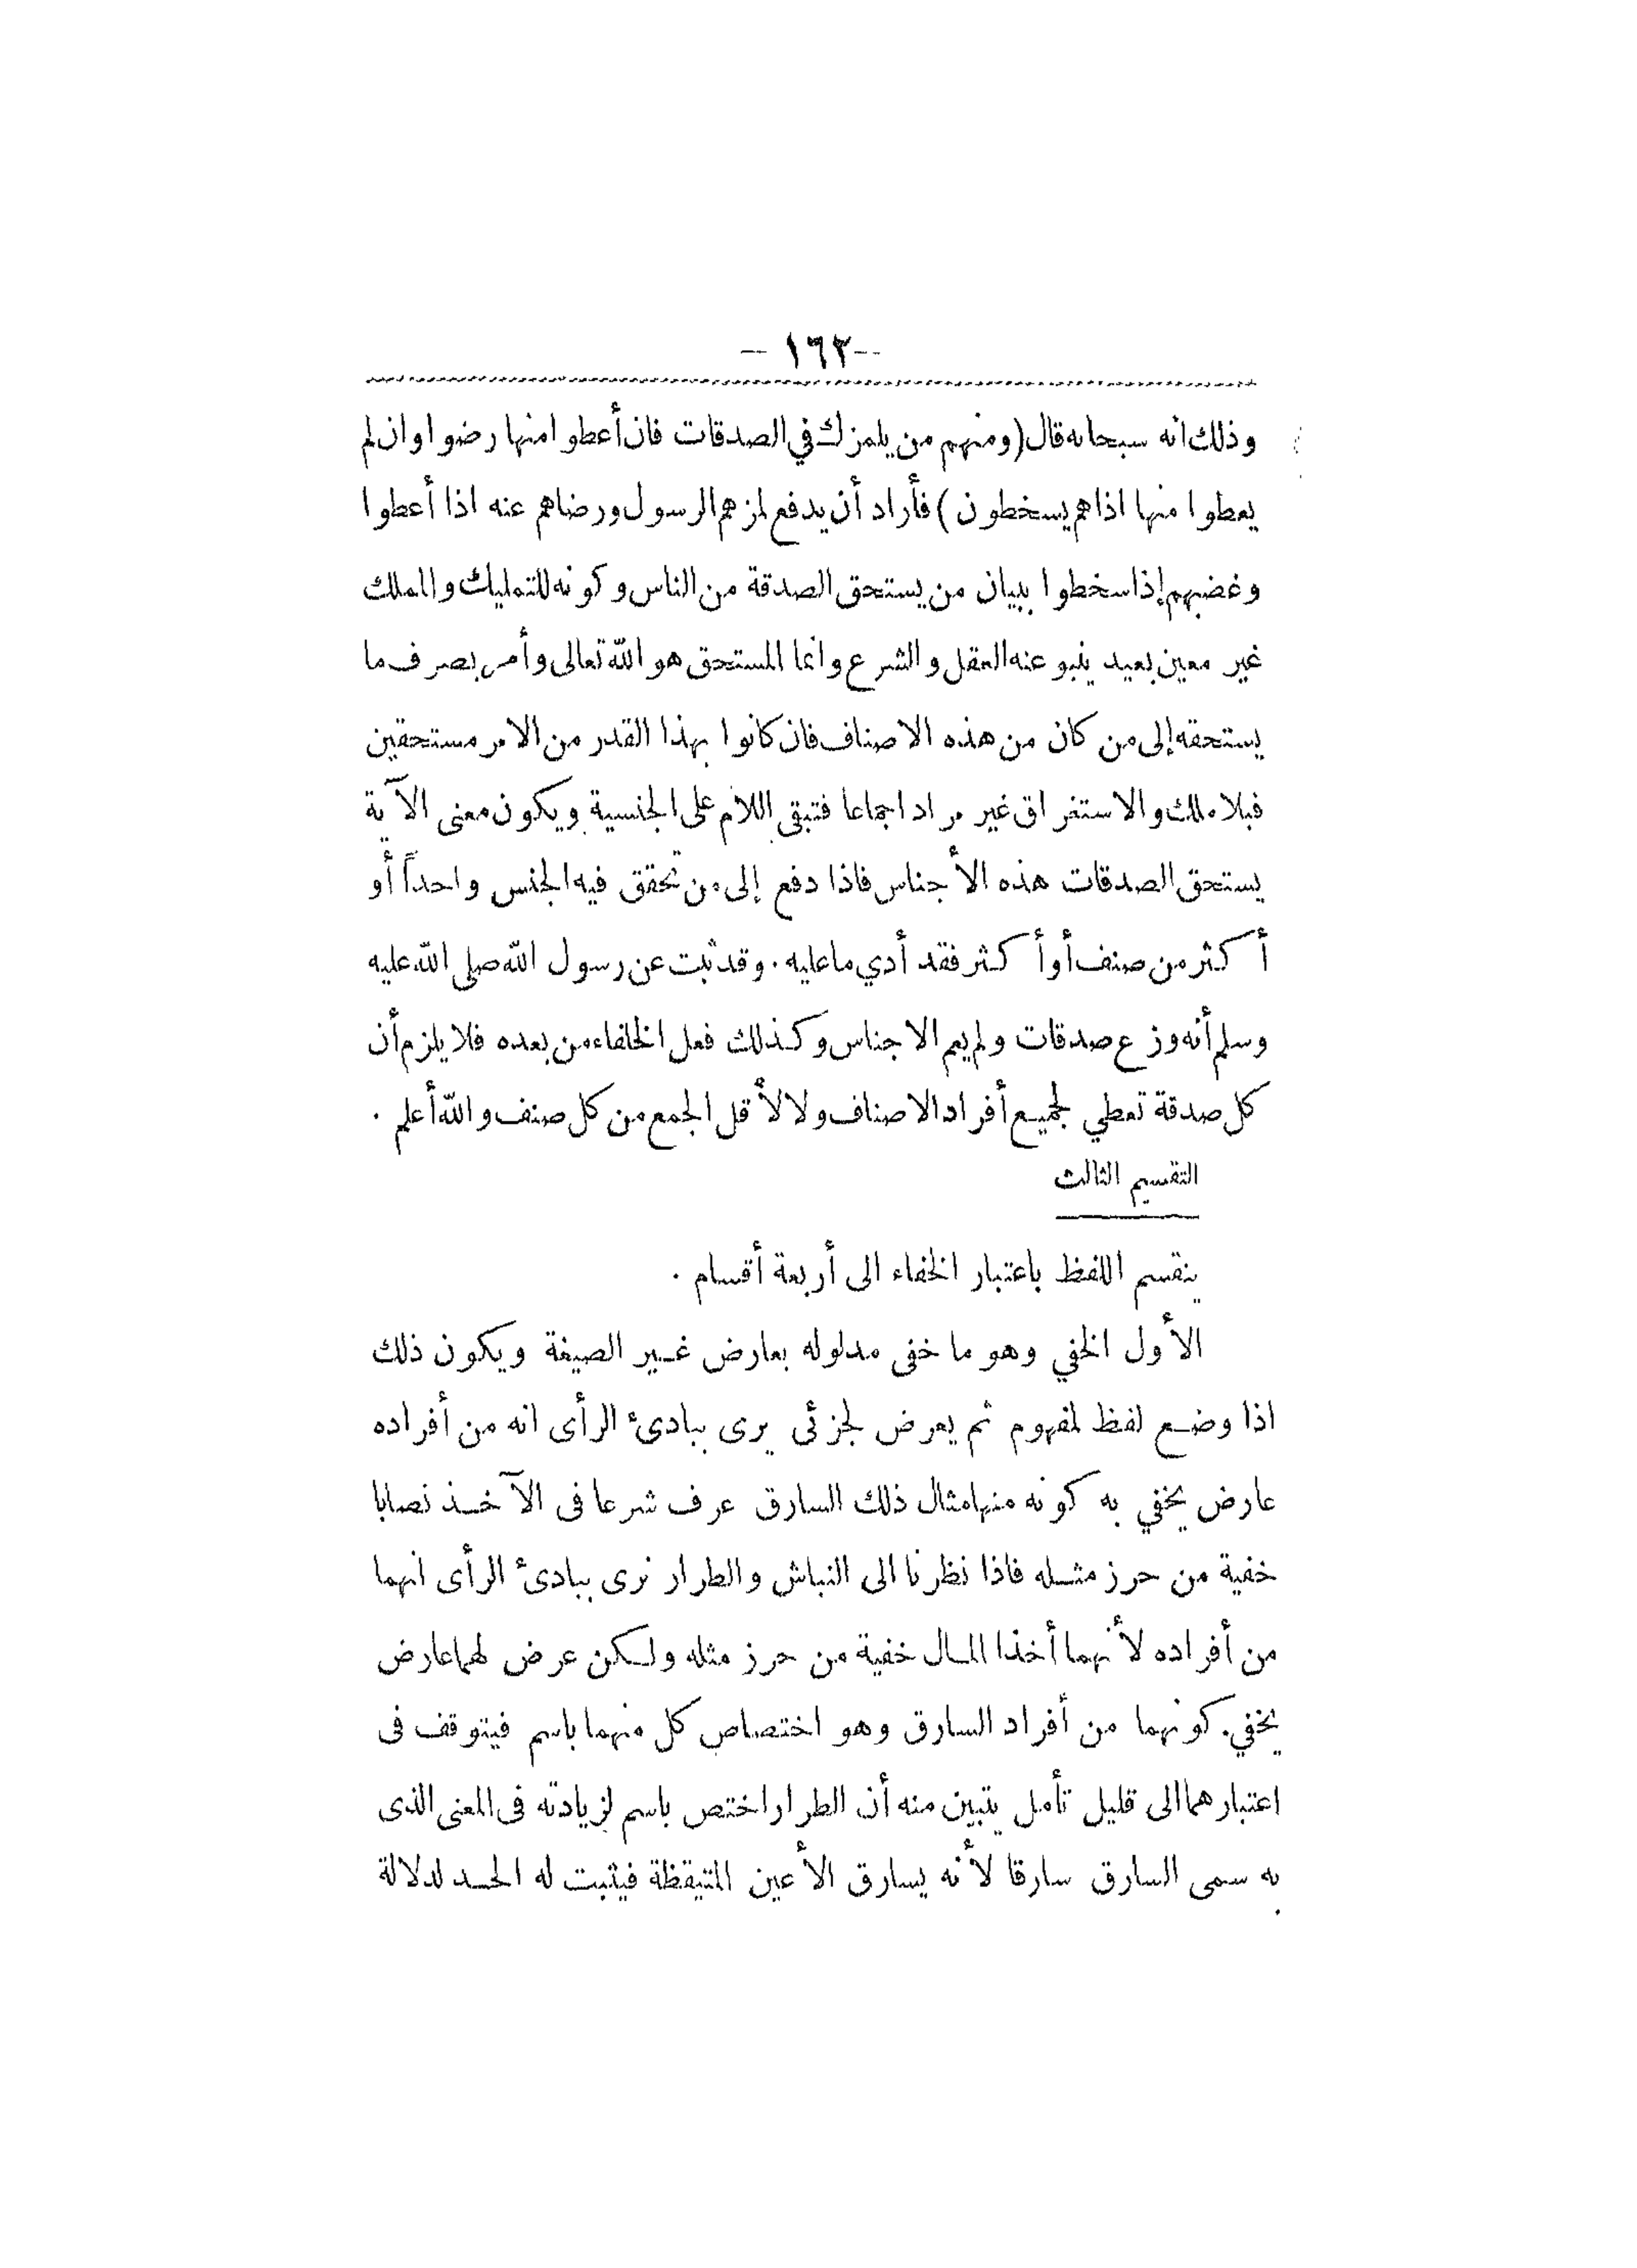 -- ١٦٣ --
وذلك انه سبحانه قال (ومنهم من يلمزك في الصدقات فان أعطوا منها رضوا وان لم
يعطوا منها اذا هم يسخطون) فأراد أن يدفع لمزهم الرسول ورضاهم عنه اذا أعطوا
وغضبهم إذا سخطوا ببيان من يستحق الصدقة من الناس وكونه للتمليك والملك
غير معين بعيد ينبو عنه العقل والشرع وانما المستحق هو الله تعالى وأمر بصرف ما
يستحقه إلى من كان من هذه الاصناف فان كانوا بهذا القدر من الامر مستحقين
فبلا ملك والاستغراق غير مراد اجماعا فتبقى اللام على الجنسية ويكون معنى الآية
يستحق الصدقات هذه الأجناس فاذا دفع إلى من تحقق فيه الجنس واحداً أو
أكثر من صنف أو أكثر فقد أدي ما عليه . وقد ثبت عن رسول الله صلى الله عليه
وسلم أنه وزع صدقات ولم يعم الاجناس وكذلك فعل الخلفاء من بعده فلا يلزم أن
كل صدقة تعطي لجميع أفراد الاصناف ولا لأقل الجمع من كل صنف والله أعلم .
التقسيم الثالث
ينقسم اللفظ باعتبار الخفاء الى أربعة أقسام .
الأول الخفي وهو ما خفى مدلوله بعارض غير الصيغة ويكون ذلك
اذا وضع لفظ لمفهوم ثم يعرض لجزئى يرى ببادئ الرأى انه من أفراده
عارض يخفي به كونه منها مثال ذلك السارق عرف شرعا فى الآخذ نصابا
خفية من حرز مثله فاذا نظرنا الى النباش والطرار نرى ببادئ الرأى انهما
من أفراده لأنهما أخذا المال خفية من حرز مثله ولكن عرض لهما عارض
يخفي كونهما من أفراد السارق وهو اختصاص كل منهما باسم فيتوقف فى
اعتبارهما الى قليل تأمل يتبين منه أن الطرار اختص باسم لزيادته فى المعنى الذى
به سمى السارق سارقا لأنه يسارق الأعين المتيقظة فيثبت له الحد لدلالة